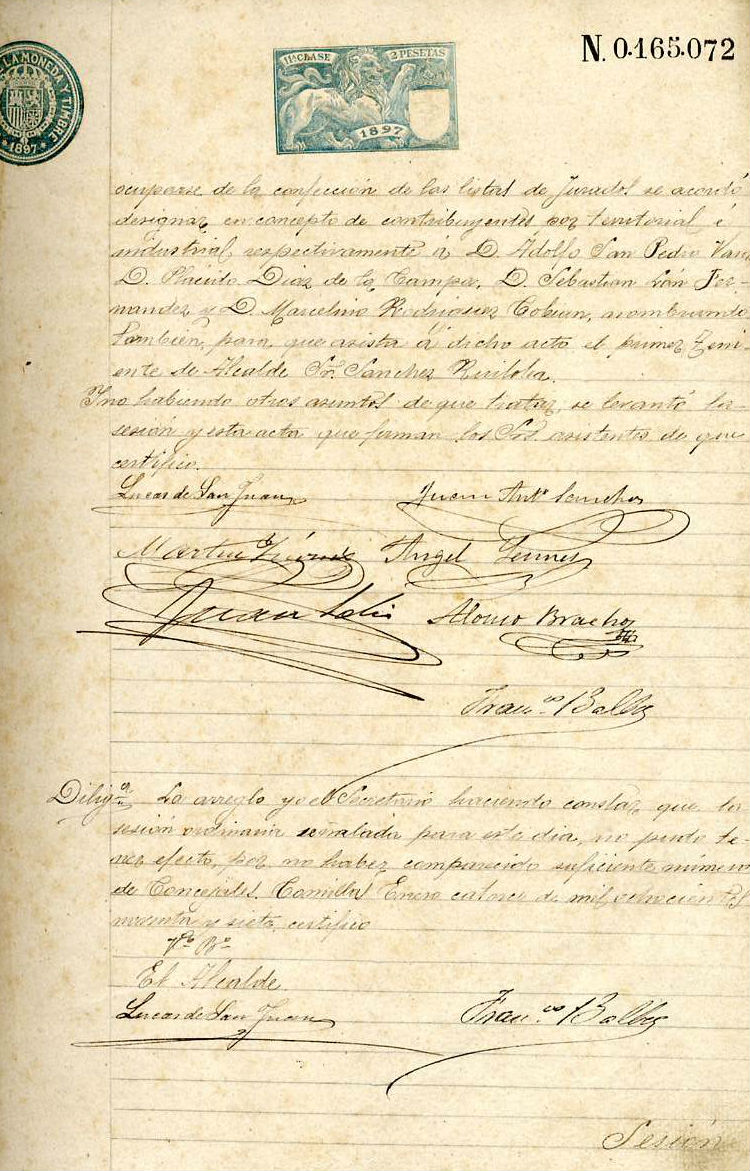 N. 0.165.072
11ª CLASE 2 PESETAS
LA MONEDA Y TIMBRE
1897
1897
ocuparse de la confección de las listas de Jurados se acordó
designar en concepto de contribuyentes por territorial é
industrial respectivamente á D. Adolfo San Pedro
D. Placido Diaz de la Campa, D. Sebastian Fer-
nandez y D. Marcelino Rodriguez nombrando
tambien, para que asista á dicho acto el primer Teni-
ente de Alcalde Sr. Sanchez
Y no habiendo otros asuntos de que tratar, se levantó la
sesión y esta acta que firman los Sres asistentes de que
certifico.
Lucas de San Juan Juan Antº Sanchez
Martin Angel
Juan Alonso Bracho
Franco Balbas
Diligª La arreglo yo el Secretario haciendo constar, que la
sesión ordinaria señalada para este dia, no pudo te-
ner efecto, por no haber comparecido suficiente número
de Concejales. Comillas Enero catorce de mil ochocientos
noventa y siete, certifico
Vº Bº
El Alcalde
Lucas de San Juan Franco Balbas
Sesión